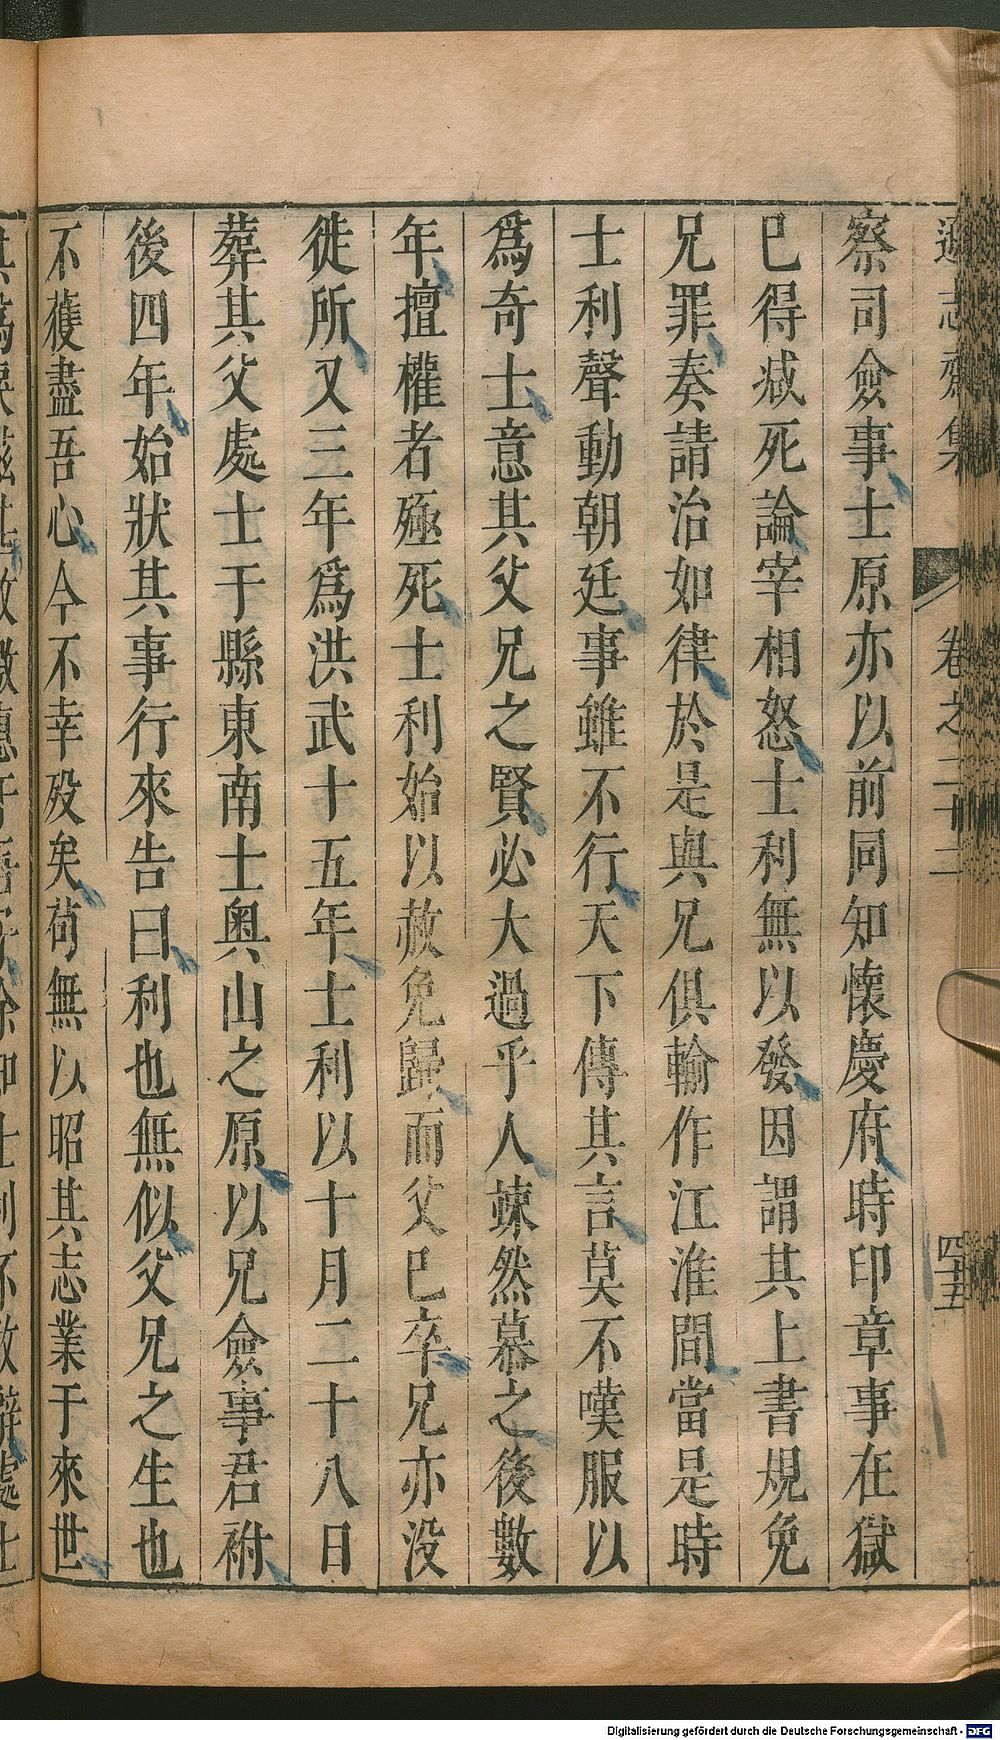 遜志齋集 卷之二十二 四十五
察司僉事士原亦以前同知懷慶府時印章事在獄
已得減死論宰相怒士利無以發因謂其上書規免
兄罪奏請治如律於是與兄俱輸作江淮間當是時
士利聲動朝廷事雖不行天下傳其言莫不嘆服以
爲奇士意其父兄之賢必大過乎人竦然慕之後數
年擅權者殛死士利始以赦免歸而父已卒兄亦没
徙所又三年爲洪武十五年士利以十月二十八日
葬其父處士于縣東南士奥山之原以兄僉事君祔
後四年始狀其事行來告曰利也無似父兄之生也
不獲盡吾心今不幸殁矣苟無以昭其志業于來世
Digitalisierung gefördert durch die Deutsche Forschungsgemeinschaft - DFG